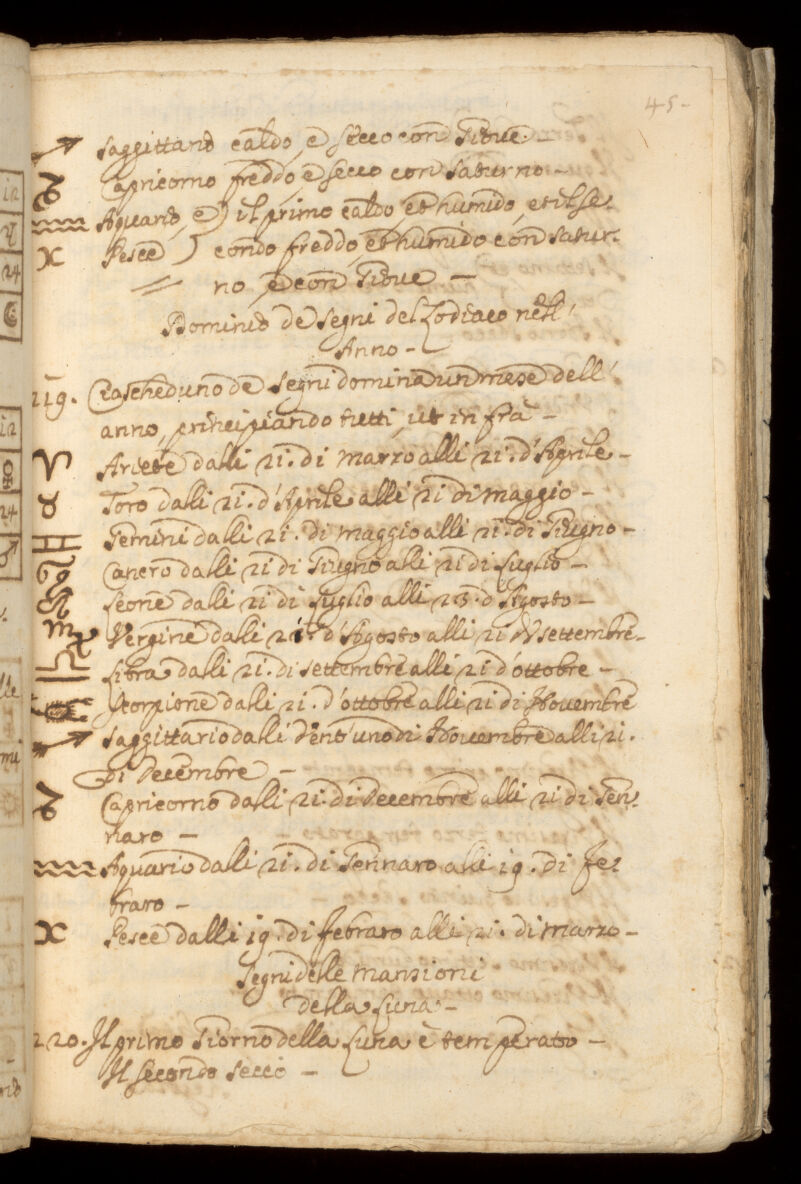 45-
♐ Saggittario caldo, è secco con Giove. -
♑ Capricorno freddo, è secco con Saturno -
♒ Aquario, è) il primo caldo, et humido, et il se-
♓ Pesce ) condo freddo, et humido con Satur-
no, è con Giove -
Dominio de Segni del Zodiaco nell'
Anno -
219. Ciascheduno de Segni domina un mese dell'
anno, principiando tutti, ut infra -
♈ Ariete dalli 21. di Marzo alli 21. d'Aprile -
♉ Toro dalli 21. d'Aprile alli 21 di Maggio -
♊ Gemini dalli 21. di Maggio alli 21. di Giugno -
♋ Cancro dalli 21 di Giugno alli 21 di Luglio -
♌ Leone dalli 21 di Luglio alli 23. d'Agosto -
♍ Vergine dalli 21. d'Agosto alli 21 di Settembre -
♎ Libra dalli 21. di Settembre alli 21 d'ottobre -
♏ Scorpione dalli 21. d'ottobre alli 21 di Novembre
♐ Saggittario dalli vent'uno di Novembre alli 21.
di Decembre -
♑ Capricorno dalli 21. di Decembre alli 21 di Gen-
naro -
♒ Aquario dalli 21. di Gennaro alli 19. di Fe-
braro -
♓ Pesce dalli 19. di Febraro alli 21. di Marzo -
Segni delle Mansioni
della Luna -
220. Il primo Giorno della Luna è temperato -
Il secondo secco -